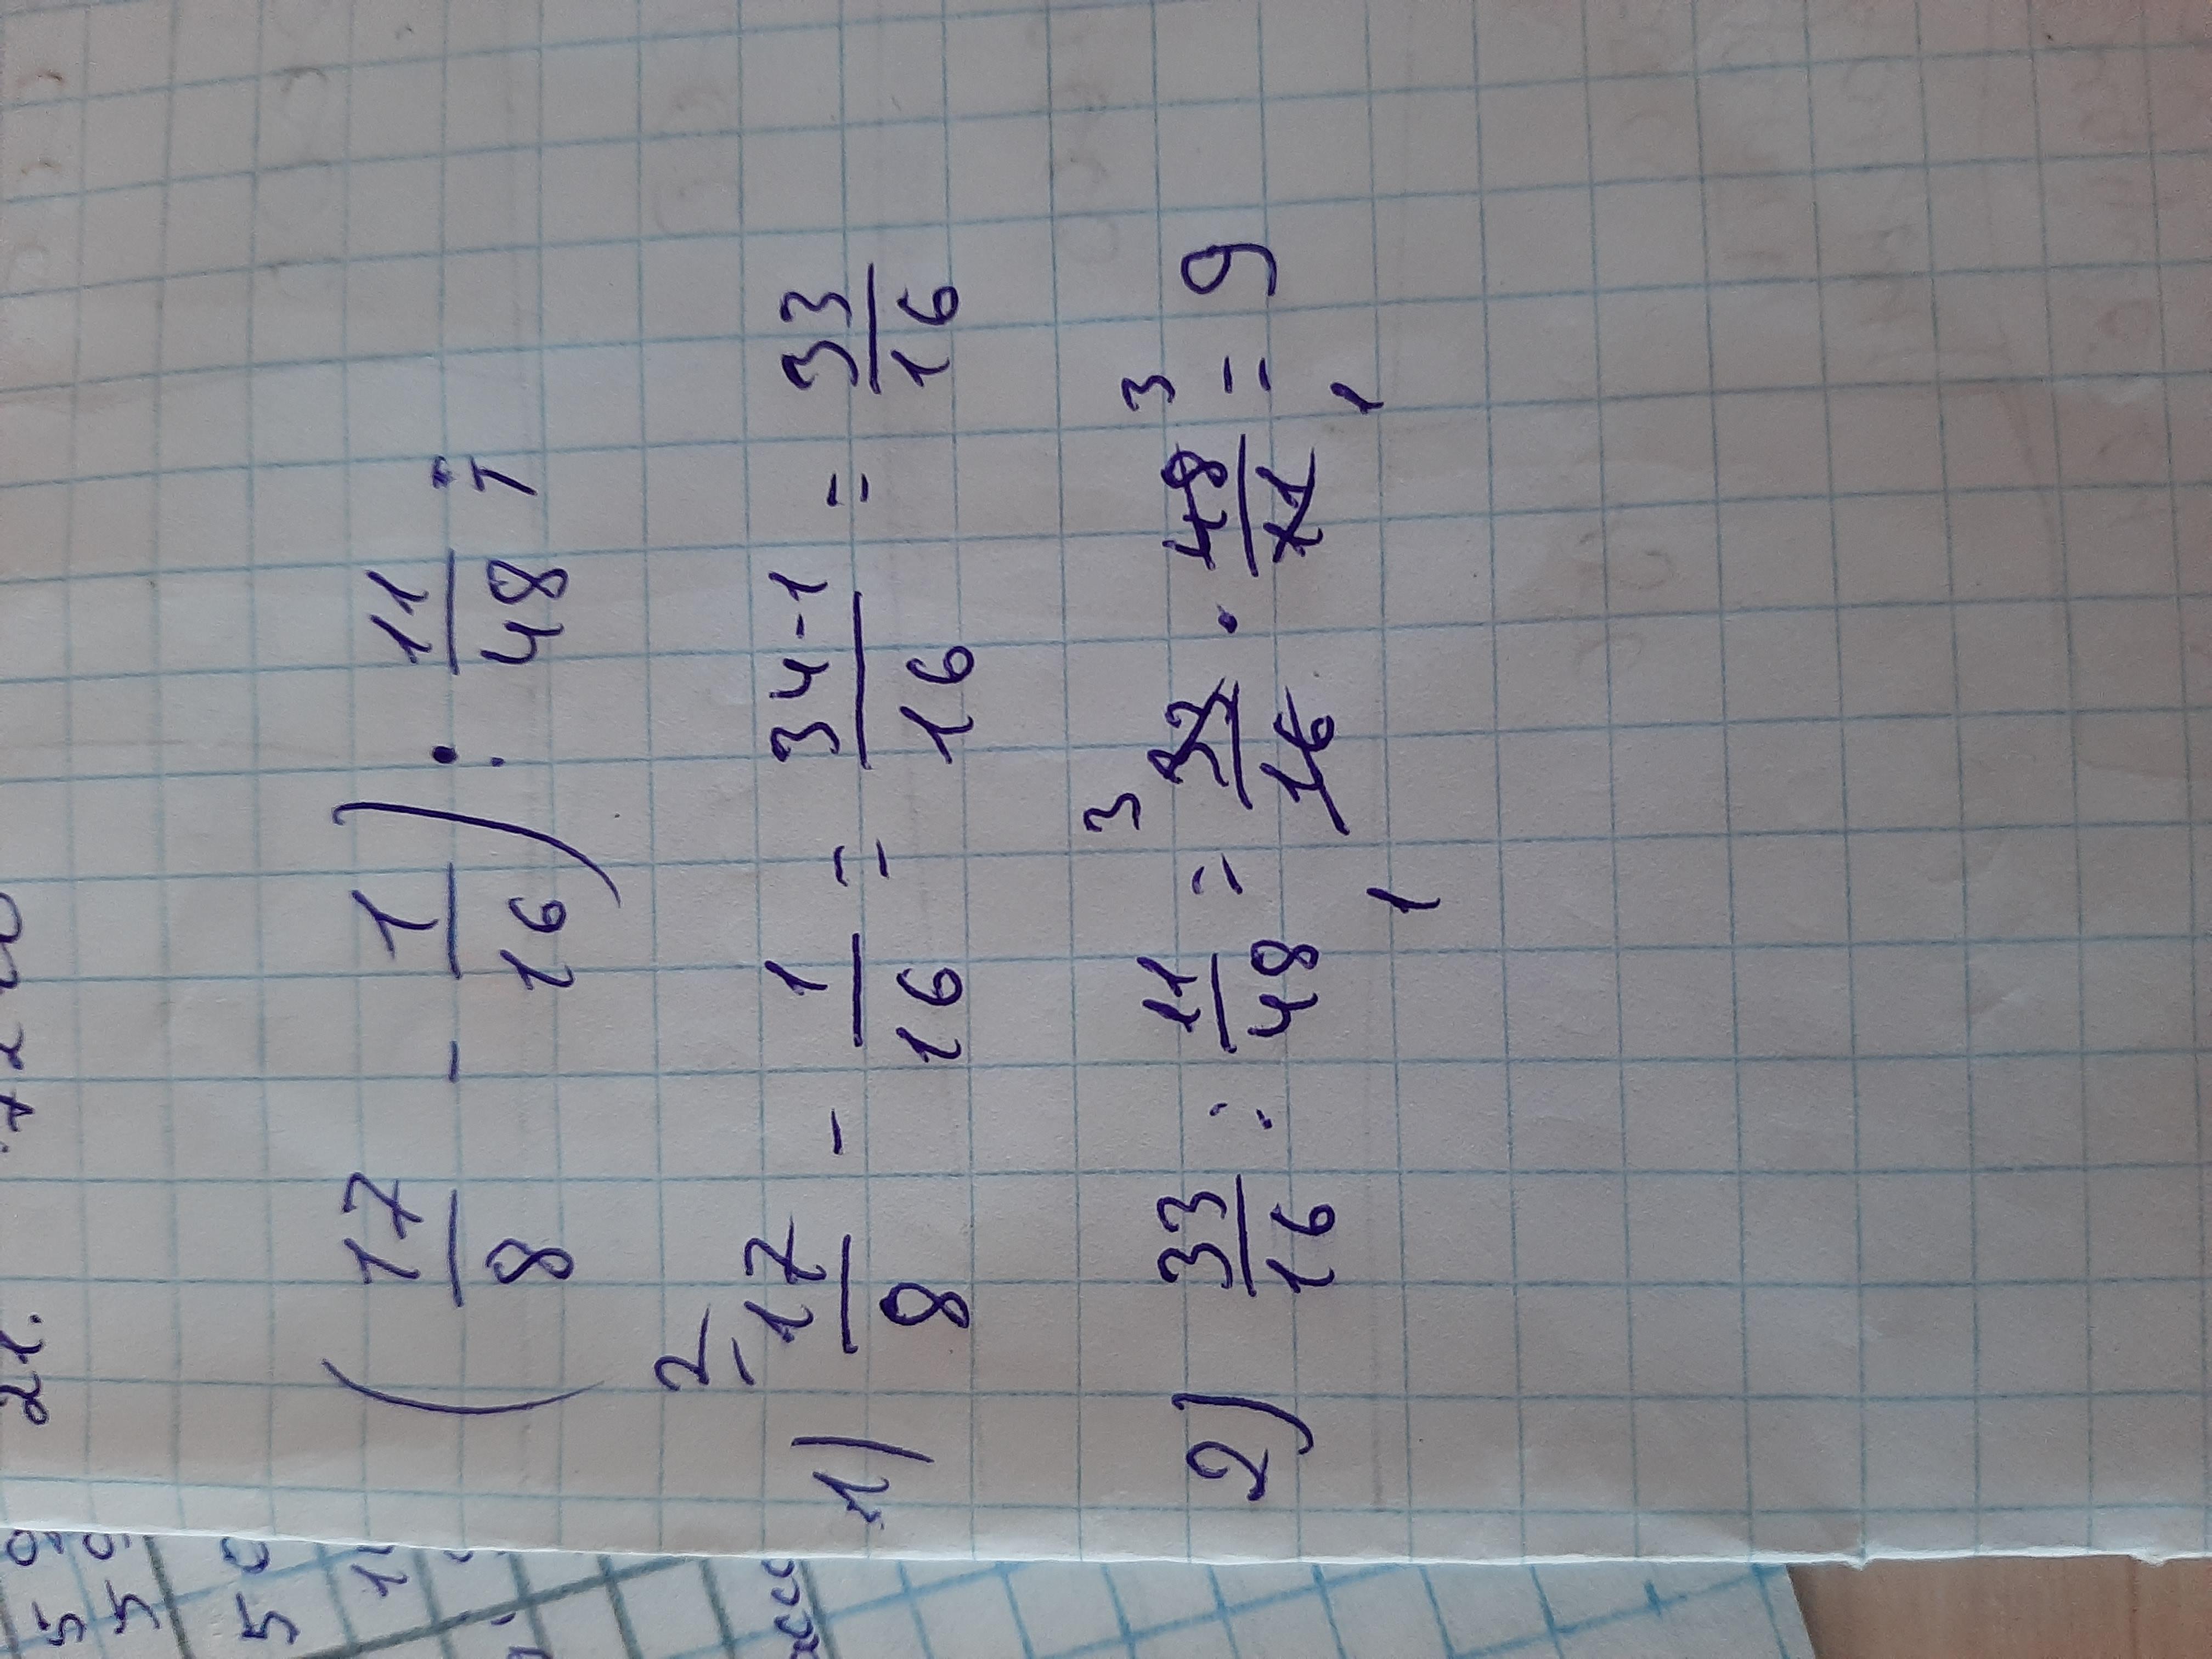 21.
(17/8 - 1/16) : 11/48 ;
1) 2 17/8 - 1/16 = 34-1/16 = 33/16
2) 33/16 : 11/48 = 3 33/16 1 · 48/11 3 1 = 9